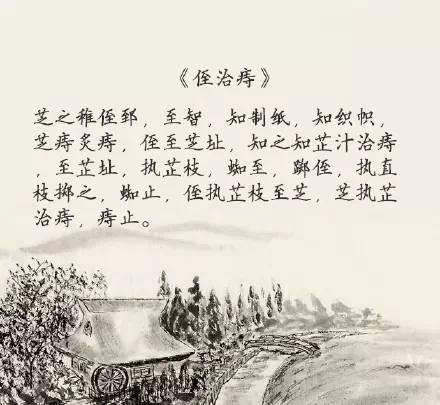 《侄治痔》
芝之稚侄郅，至智，知制纸，知织帜，
芝痔炙痔，侄至芝址，知之知芷汁治痔
，至芷址，执芷枝，蜘至，踯侄，执直
枝掷之，蜘止，侄执芷枝至芝，芝执芷
治痔，痔止。